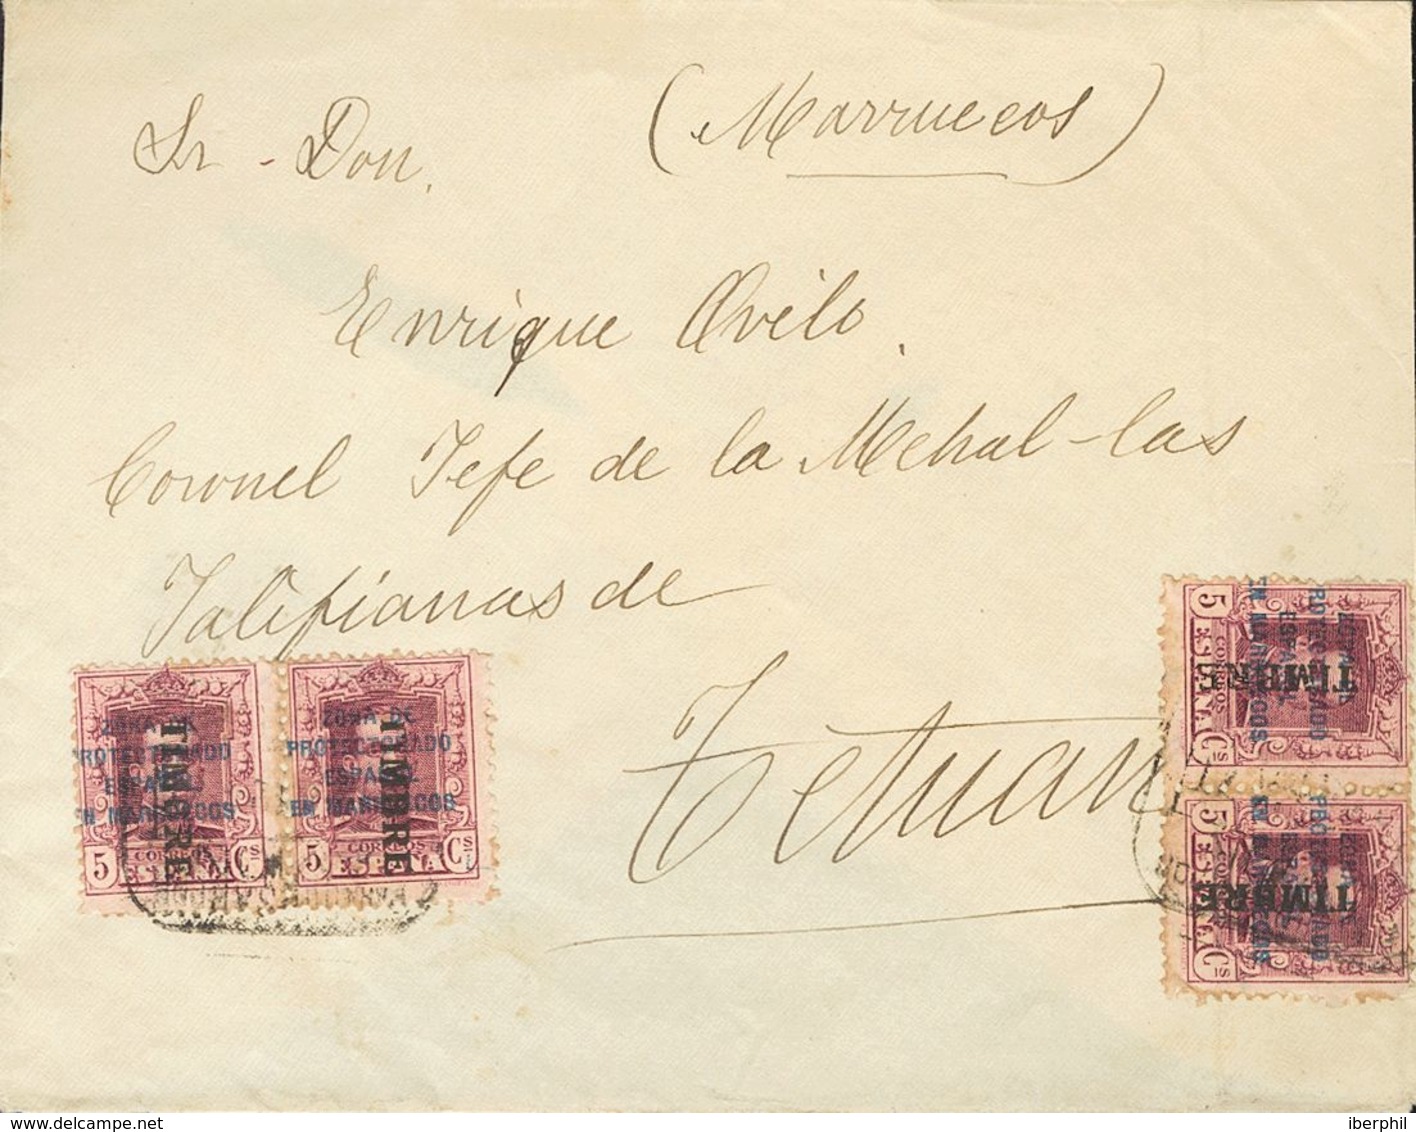 (Marruecos)
Sr - Don.
Enrique Ovilo.
Coronel Jefe de la Mehal-las
Jalifianas de
Tetuan
ZONA DE
PROTECTORADO
ESPAÑOL
EN MARRUECOS
TIMBRE
5 CORREOS Cs
ESPAÑA
ZONA DE
PROTECTORADO
ESPAÑOL
EN MARRUECOS
TIMBRE
5 CORREOS Cs
ESPAÑA
ZONA DE
PROTECTORADO
ESPAÑOL
EN MARRUECOS
TIMBRE
5 CORREOS Cs
ESPAÑA
ZONA DE
PROTECTORADO
ESPAÑOL
EN MARRUECOS
TIMBRE
5 CORREOS Cs
ESPAÑA
delcampe.net
iberphil